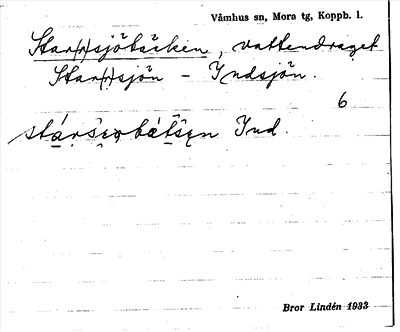 Våmhus sn, Mora tg, Koppb. l.
Star(r)sjöbäcken, vattendraget
Star(r)sjön - Yndsjön.
6
Ynd.
Bror Lindén 1933